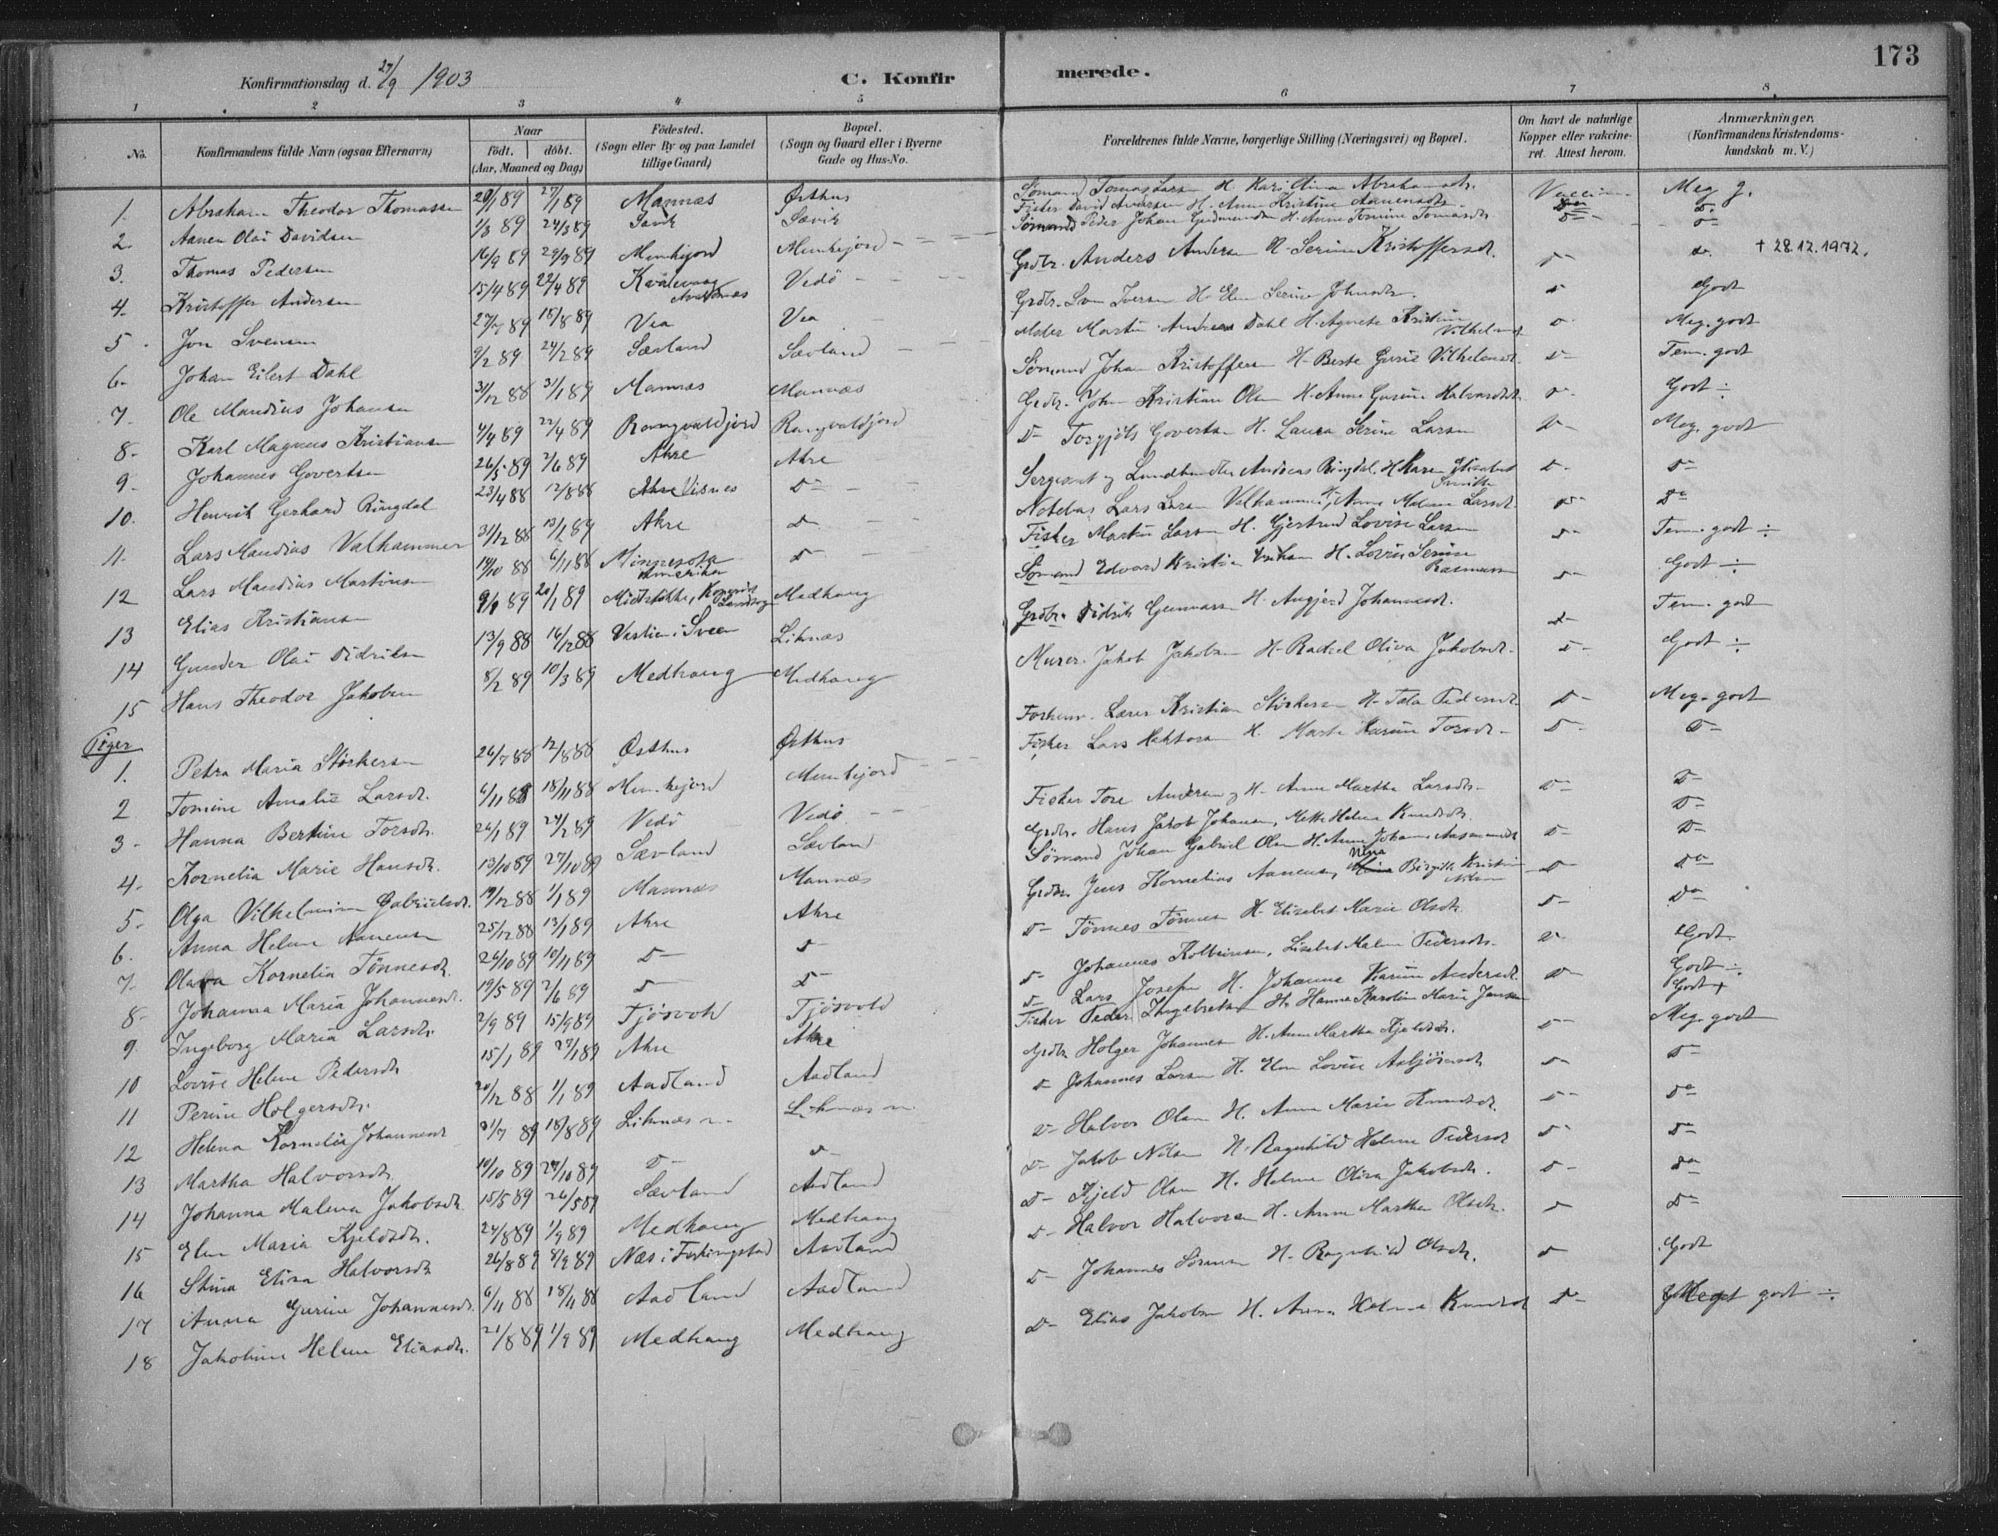 173
Konfirmationsdag d. 27/9 1903
C. Konfirmerede.
1 2 3 4 5 6 7 8
No.
Konfirmandens fulde Navn (ogsaa Efternavn)
Naar
født. døbt.
(Aar, Maaned og Dag)
Fødested.
(Sogn eller By og paa Landet
tillige Gaard)
Bopæl.
(Sogn og Gaard eller i Byerne
Gade og Hus-No.
Forældrenes fulde Navne, borgerlige Stilling (Næringsvei) og Bopæl.
Om havt de naturlige
Kopper eller vaccine-
ret. Attest herom.
Anmærkninger.
(Konfirmandens Kristendoms-
kundskab m. V.)
1. Abraham Theodor Thomassen 27/1 89 Mannæs Østhus Sømand Tomas Larsen H. Abrahamsdr. Vaccin. Meg. g.
2. Aanen Olai Davidsen 1/3 89 24/3 89 Sævik Fisker David H. Anne Kristine Aanensdr. D-
3. Thomas Pedersen 16/9 89 29/9 89 Munkejord Munkejord Sømand Peder Johan H. Anne Tomine Tomasdr. D- D-
4. Kristoffer Andersen 15/4 89 22/4 89 Kvalevaag Avaldsnæs Vedø Grdbr. Anders Andersen H. Serine Kristoffersdr. D- D. † 28.12.1972.
5. Jon Svensen 27/7 89 18/8 89 Vea Vea Grdbr. Sven Iversen H. Elen Serine Johnsdr. D Godt
6. Johan Eilert Dahl 9/2 89 24/2 89 Sævland Sævland Maler Martin Andreas Dahl H. Agnete Kristine Vilhelmsd. D Meg. godt
7. Ole Mandius Johansen 31/12 88 31/1 89 Mannæs Mannæs Sømand Johan Kristoffersen H. Berte Gurie Vilhelmsd. D- Tem. godt
8. Karl Magnus Kristiansen 4/4 89 22/4 89 Rangvaldjord Rangvaldjord Grdbr. John Kristian Olsen H. Anne Gurine Halvorsdt. D- Godt ÷
9. Johannes Govertsen 26/5 89 2/6 89 Akre Akre D- Torgjøls Govertsen H. Laura Serine Larsen D- Meg. godt
10. Henrik Gerhard Ringdal 23/4 88 12/8 88 Akre Visnes D- Sergeant og Andreas Ringdal, H. Karen Elisabet Smith D- D-
11. Lars Mandius Valhammer 31/12 88 13/1 89 Akre D- Notebas Lars Larsen Valhammer, H. Anne Malene Larsdr. D- D-
12 Lars Mandius Martinsen 19/10 88 6/11 88 Minnesota Amerika D- Fisker Martin Larsen H. Gjertrud Lovise Larsen D- Tem. godt ÷
13 Elias Kristiansen 9/1 89 20/1 89 Medhaug Sømand Edvard Kristian H. Lovise Serine Rasmussen D- Godt ÷
14 Gunder Olai Didriksen 13/9 88 16/12 88 Liknæs Grdbr. Didrik Gunnarsen H. Johannesdr. D- Tem. godt
15 Hans Theodor Jakobsen 8/2 89 10/3 89 Medhaug Medhaug Murer. Jakob Jakobsen H. Rachel Oliva Jakobsdr. D- Godt ÷
Piger
1. Petra Maria Størkersen 26/7 88 12/8 88 Østhus Østhus Lærer Kristian Størkersen H. Tala Pedersdt. D- Meg. godt
2 Tomine Amalie Larsdr. 6/11 88 18/11 88 Munkejord Munkejord Fisker Lars H. Marta Karine Torsdr. D- D-
3- Hanna Bertine Torsdr. 26/1 89 24/2 89 Vedø Vedø Fisker Tore Andersen og H. Anne Martha Larsdr. D- D-
4. Kornelia Marie Hansdr. 13/10 89 27/10 89 Sævland Sævland Grdbr. Hans Jakob Johansen, Mette Helene Knudsdr. D-
5. Olga Vilhelmina Gabrielsdr. 19/12 88 1/1 89 Mannæs Mannæs Sømand Johan Gabriel Olsen H. Anne Johanne D- D-
6. Anna Helene Aanensen 25/12 88 13/1 89 Akre Akre Grdbr. Jens Kornelius Aanensen, Nina Birgitte Kristine Nilsen D- D-
7. Olava Kornelia Tønnesdr. 26/10 89 10/11 89 D- D- D- Tønnes Tønnesen H. Elisabet Marie Olsdr. D- D-
8- Johanna Maria Johannesdr. 19/5 89 2/6 89 D- D- D- Johannes Kolbeinsen, Lisebet Malene Pedersdr. D. Godt
9. Ingeborg Maria Larsdr. 2/9 89 15/9 89 Tjøsvold Tjøsvold D- Lars Josefsen H. Johanne Karine Andersdt. D- Godt ÷
10 Lovise Helene Pedersdr 15/1 89 27/1 89 Akre Akre Fisker Peder Ingebretsen H. Hanna Karoline Marie Jansen Godt +
11 Perine Holgersdr. 20/12 88 1/1 89 Aadland Aadland Grdbr Holger Johannesen H. Anne Martha Kjeldsdr. D- Meg. godt
12 Helena Kornelia Johannesdr 31/7 89 18/8 89 Liknæs Liknæs D- Johannes Larsen H. Elen Lovise Asbjørnsdr. D- D-
13 Martha Halvorsdr. 10/10 89 27/10 89 D- D- D- Halvor Olsen H. Anne Marie Knudsdr. D- D-
14 Johanna Malena Jakobsdr. 15/5 89 26/5 89 Sævland Aadland D- Jakob Nilsen H. Ragnhild Helene Pedersdr D- D-
15 Elen Maria Kjeldsdr. 24/8 89 1/9 89 Medhaug Medhaug D- Kjeld Olsen H. Helene Oliva Jakobsdr. D- D-
16 Stina Elisa Halvorsdr 26/8 89 8/9 89 Næs i Ferkingstad Aadland D- Halvor Halvorsen H. Anne Martha Olsdr. D D-
17 Anna Gurine Johannesdr. 6/11 88 18/11 88 Aadland Aadland D- Johannes Sørensen H. Ragnhild Olsdr. D Godt
18 Jakobine Helene Eliasdr. 21/8 89 1/9 89 Medhaug Medhaug D- Elias Jakobsen H. Anna Helene Knudsdt D- Meget godt ÷